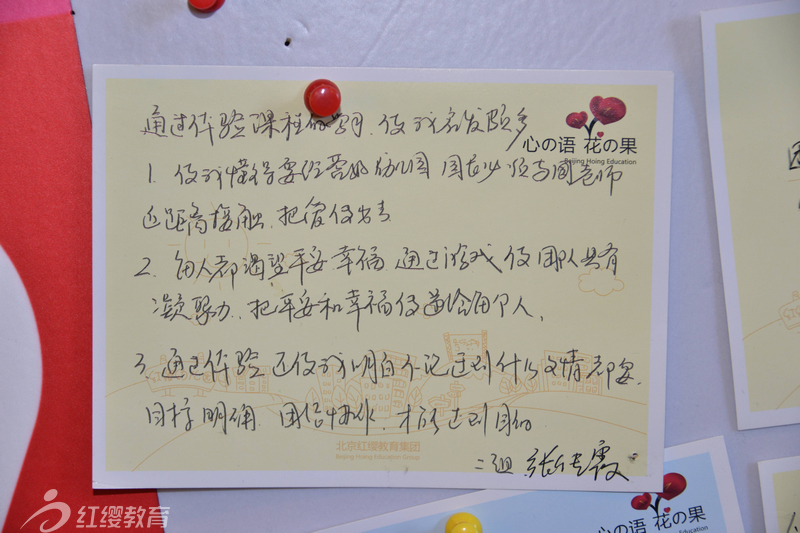 通过体验课程的学习、使我启发颇多
心の语 花の果
Beijing Hoing Education
1. 使我懂得要经营好幼儿园 园长必须与园老师
近距离接触、把爱传出去
2. 每人都渴望平安幸福 通过游戏 使团队具有
凝聚力、把平安和幸福传递给每个人、
3. 通过体验 还使我明白不论达到什么事情都要
目标明确 团结协作、才能达到目的
北京红缨教育集团
Beijing Hoing Education Group
二组 张 霞
红缨教育
心の语 花の果